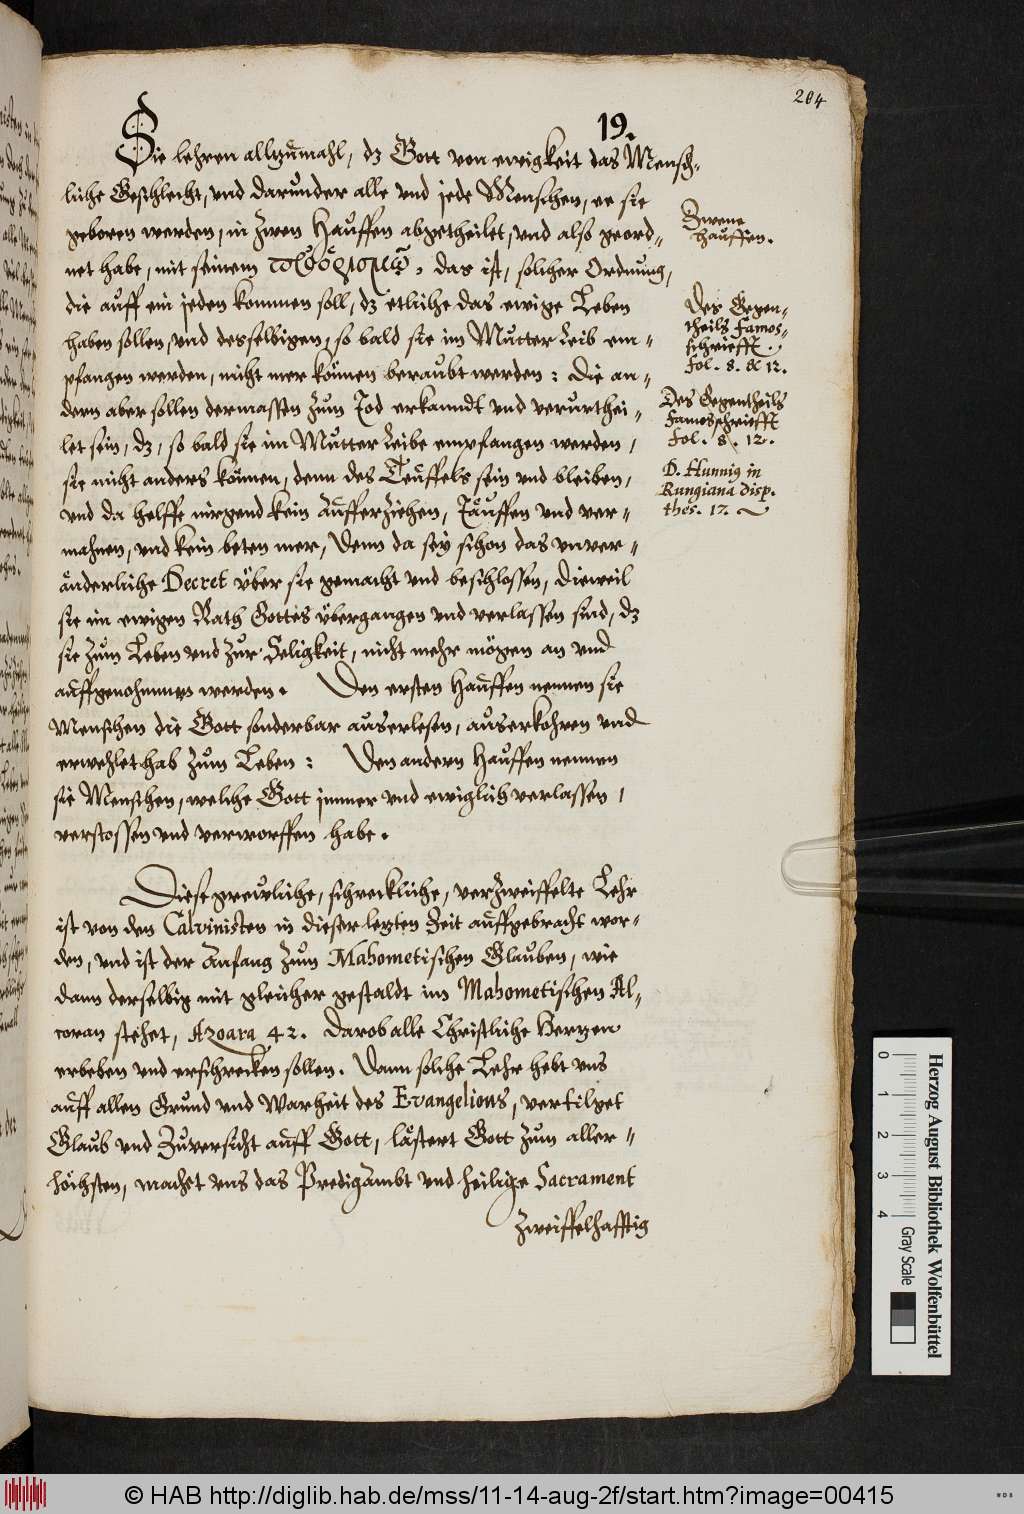 204
19.
Sie lehren allzumahl, dz Gott von ewigkeit das Mensch-
liche Geschlecht, vnd darunder alle vnd jede Menschen, ee sie
geboren werden, in zwen Hauffen abgetheilet, vnd also geord-
net habe, mit seinem das ist, solcher Ordnung,
die auff ein jeden kommen soll, dz etliche das ewige Leben
haben sollen, vnd desselbigen, so bald sie im Mutter Leib em-
pfangen werden, nicht mer können beraubt werden: Die an-
dern aber sollen dermassen zum Tod erkanndt vnd verurthei-
let sein, dz, so bald sie im Mutter Leibe empfangen werden,
sie nicht anders können, denn des Teuffels sein vnd bleiben,
vnd da helffe nirgend kein aufferziehen, Täuffen vnd ver-
mahnen, vnd kein beten mer, Denn da sey schon das vnver-
änderliche Decret über sie gemacht vnd beschlossen, dieweil
sie im ewigen Rath Gottes übergangen vnd verlassen sind, dz
sie zum Leben vnd zur Seligkeit, nicht mehr mögen an vnd
auffgenohmmen werden. Den ersten Hauffen nennen sie
Menschen die Gott sonderbar auserlesen, auserkohren vnd
erwehlet hab zum Leben: Den andern Hauffen nennen
sie Menschen, welche Gott jmmer vnd ewiglich verlassen,
verstossen vnd verworffen habe.
Diese grewliche, schreckliche, verzweiffelte Lehr
ist von den Calvinisten in dieser letzten Zeit auffgebracht wor-
den, vnd ist der Anfang zum Mahometischen Glauben, wie
dann derselbig mit gleicher gestaldt im Mahometischen Al-
coran stehet, Azoara 42. Darob alle Christliche Hertzen
erbeben vnd erschrecken sollen. Dann solche Lehr hebt vns
auff allen Grund vnd Warheit des Evangelions, vertilget
Glaub vnd Zuversicht auff Gott, lästert Gott zum aller-
höchsten, machet vns das Predigambt vnd heilige Sacrament
zweiffelhafftig
Zwene
hauffen.
Des Gegen-
theils Famos-
schriefft.
fol. 8. & 12.
Des Gegentheils
Famosschriefft
fol. 8. 12.
D. Hunnig in
Rungiana disp.
thes. 17.
Herzog August Bibliothek Wolfenbüttel
0 1 2 3 4
Gray Scale
© HAB http://diglib.hab.de/mss/11-14-aug-2f/start.htm?image=00415